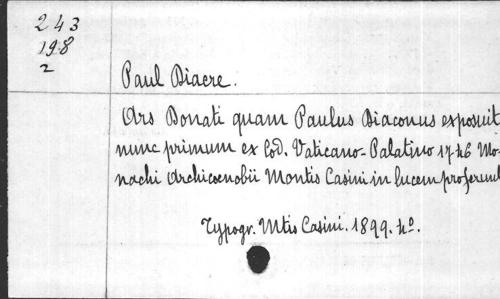 243
198
2
Paul Diacre.
Ars Donati quam Paulus Diaconus exposuit
nunc primum ex Cod. Vaticano-Palatino 1746 Mo-
nachi Archicoenobii Montis Casini in lucem proferunt
Typogr. Mtis Casini. 1899. 4º.